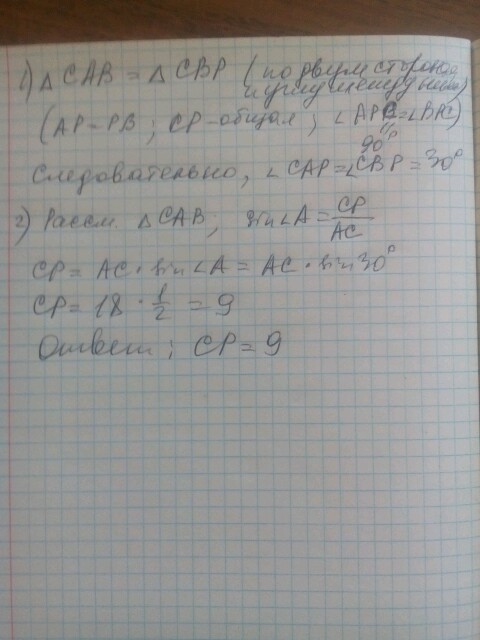 1) △ CAB = △ CBP (по двум сторонам
и углу между ними)
(AP = PB ; CP - общая ; ∠APC = ∠BPC)
90°
Следовательно, ∠ CAP = ∠CBP = 30°
2) Рассм. △ CAB ; sin∠A = CP/AC
CP = AC · sin∠A = AC · sin30°
CP = 18 · 1/2 = 9
Ответ ; CP = 9